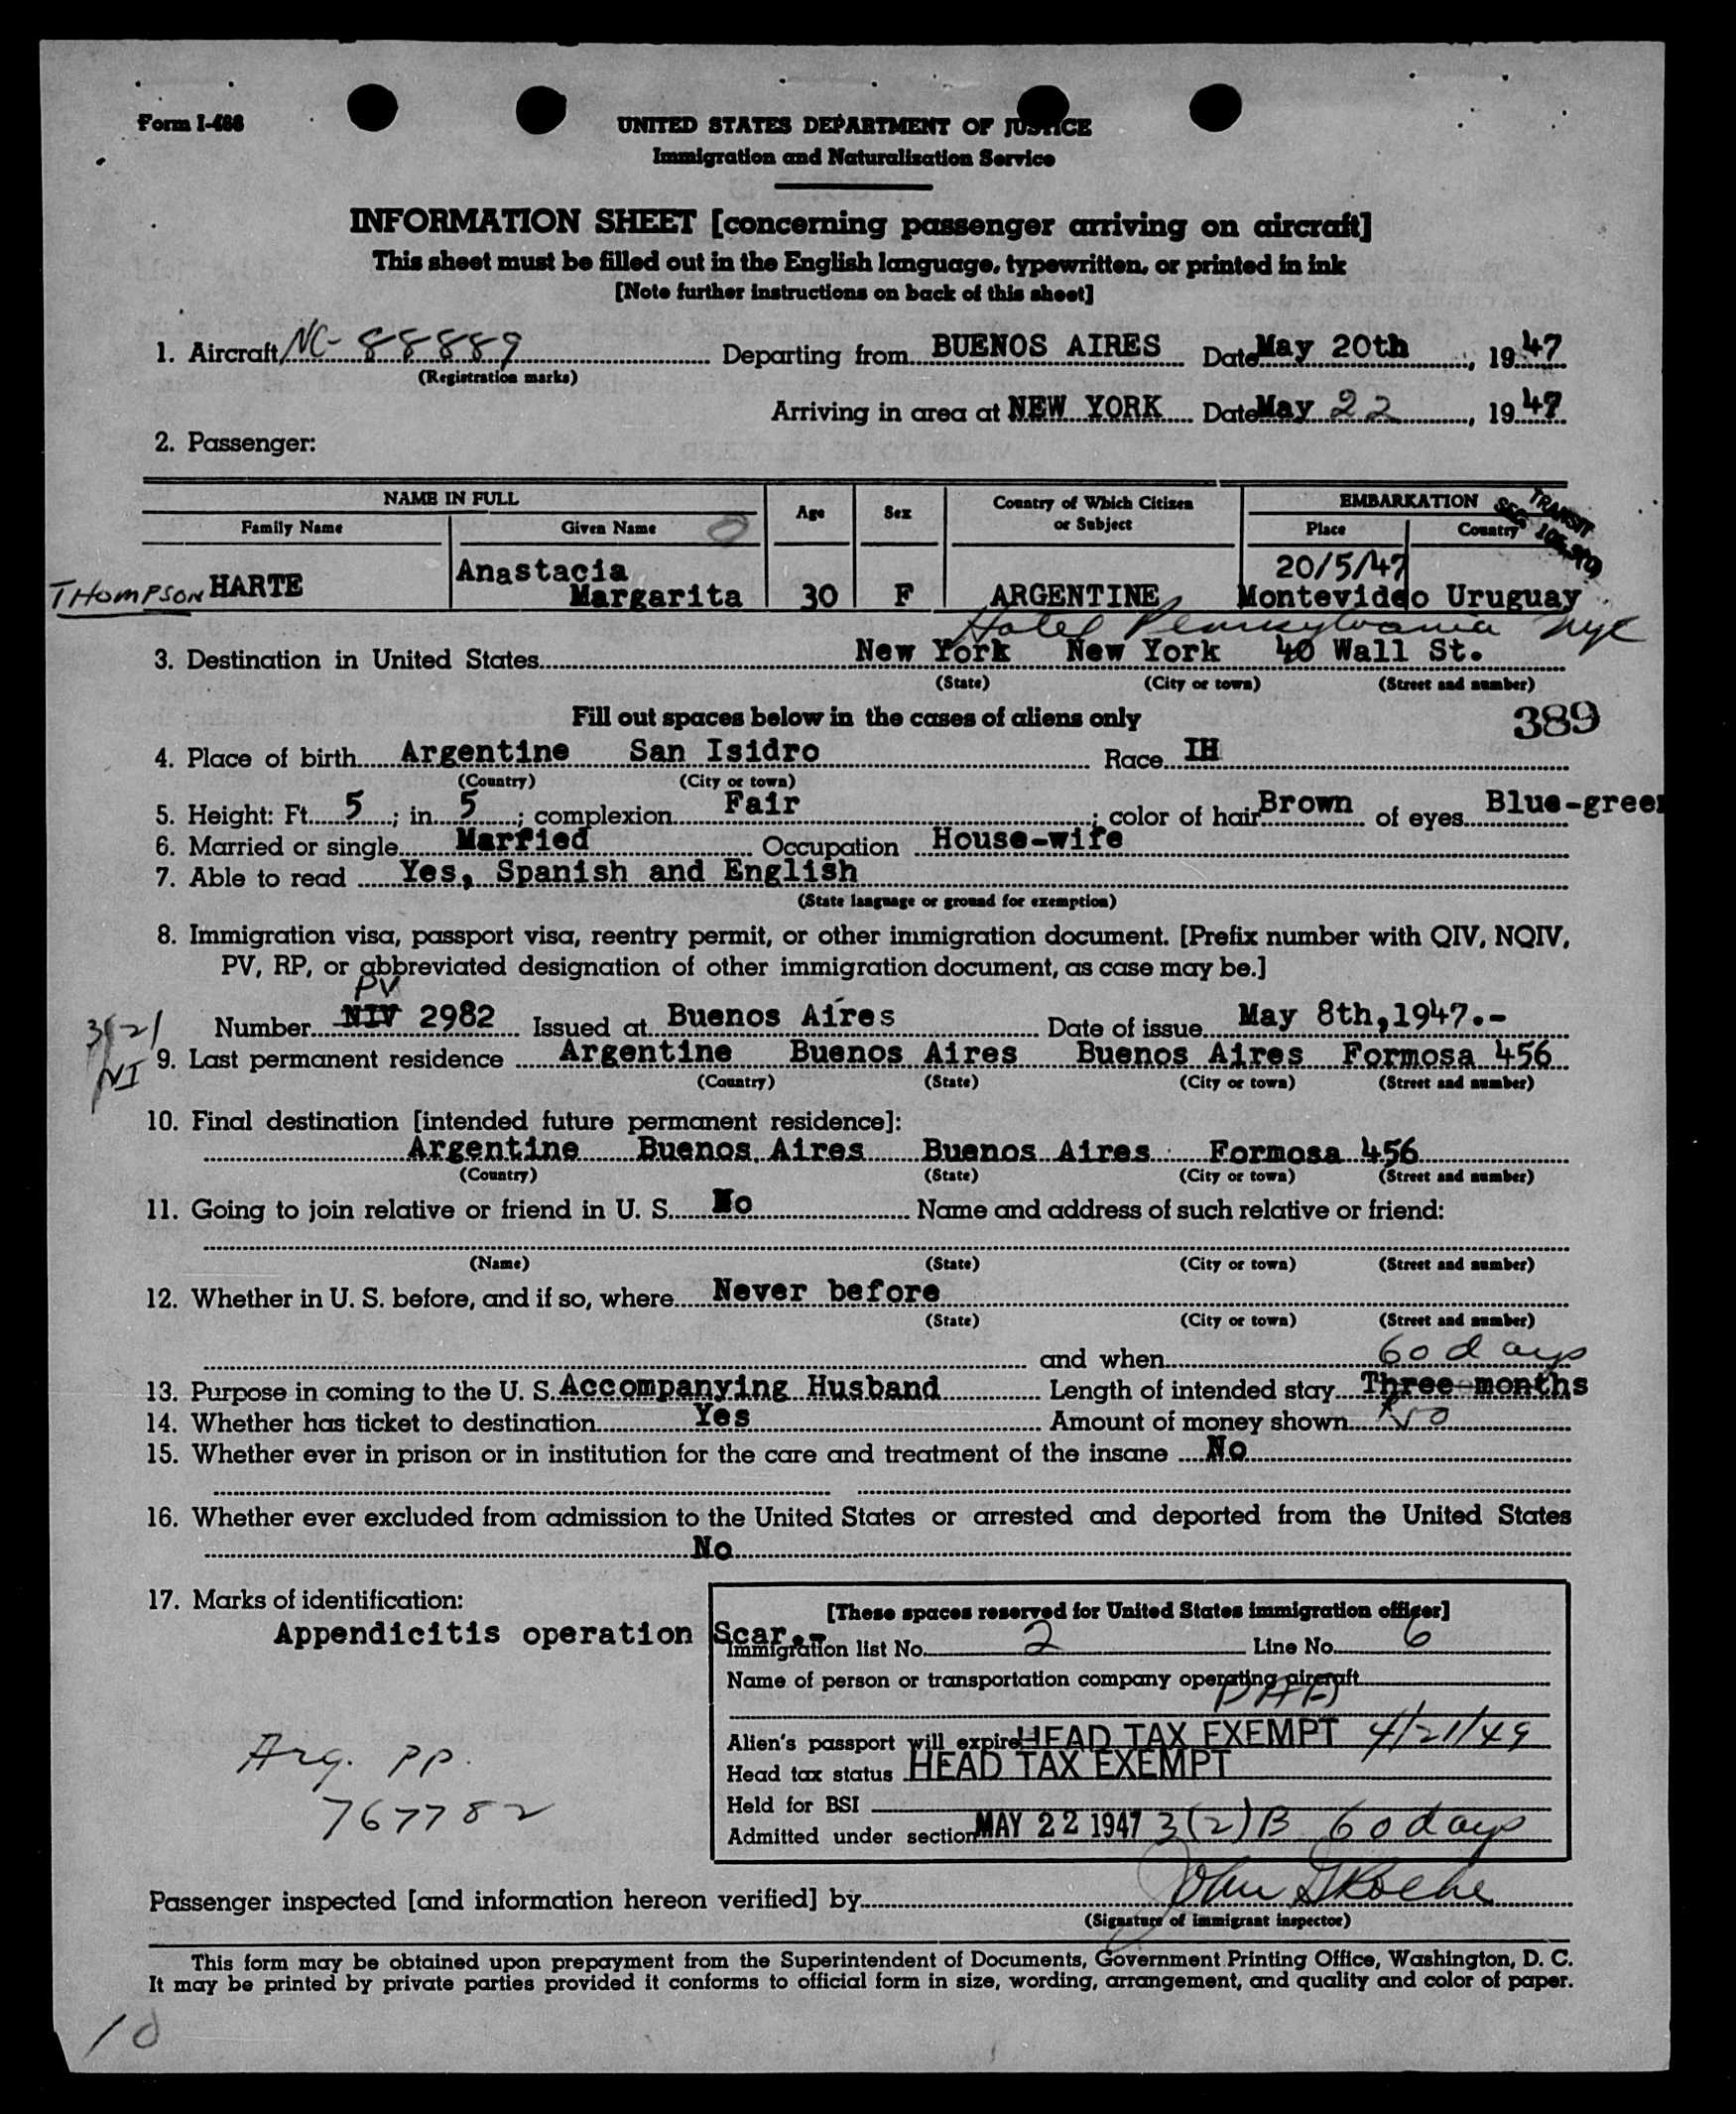 Form I-466
UNITED STATES DEPARTMENT OF JUSTICE
Immigration and Naturalization Service
INFORMATION SHEET [concerning passenger arriving on aircraft]
This sheet must be filled out in the English language, typewritten, or printed in ink
[Note further instructions on back of this sheet]
1. Aircraft NC-88889 Departing from BUENOS AIRES Date May 20th, 1947
(Registration marks)
Arriving in area at NEW YORK Date May 22, 1947
2. Passenger:
NAME IN FULL Age Sex Country of Which Citizen or Subject EMBARKATION
Family Name Given Name Place Country
TRANSIT
THOMPSON HARTE Anastacia Margarita 30 F ARGENTINE 20/5/47 Montevideo Uruguay
Hotel Pennsylvania NYC
3. Destination in United States New York New York 40 Wall St.
(State) (City or town) (Street and number)
Fill out spaces below in the cases of aliens only 389
4. Place of birth Argentine San Isidro Race IH
(Country) (City or town)
5. Height: Ft. 5; in. 5; complexion Fair; color of hair Brown of eyes Blue-green
6. Married or single Married Occupation House-wife
7. Able to read Yes, Spanish and English
(State language or ground for exemption)
8. Immigration visa, passport visa, reentry permit, or other immigration document. [Prefix number with QIV, NQIV,
PV, RP, or abbreviated designation of other immigration document, as case may be.]
PV
3(2) Number NIV 2982 Issued at Buenos Aires Date of issue May 8th,1947.-
NI 9. Last permanent residence Argentine Buenos Aires Buenos Aires Formosa 456
(Country) (State) (City or town) (Street and number)
10. Final destination [intended future permanent residence]:
Argentine Buenos Aires Buenos Aires Formosa 456
(Country) (State) (City or town) (Street and number)
11. Going to join relative or friend in U. S. No Name and address of such relative or friend:
(Name) (State) (City or town) (Street and number)
12. Whether in U. S. before, and if so, where Never before
(State) (City or town) (Street and number)
and when 60 days
13. Purpose in coming to the U. S. Accompanying Husband Length of intended stay Three months
14. Whether has ticket to destination Yes Amount of money shown
15. Whether ever in prison or in institution for the care and treatment of the insane No
16. Whether ever excluded from admission to the United States or arrested and deported from the United States
No
17. Marks of identification:
Appendicitis operation Scar.-
[These spaces reserved for United States immigration officer]
Immigration list No. 2 Line No. 6
Name of person or transportation company operating aircraft
PAA
Alien's passport will expire HEAD TAX EXEMPT 4/21/49
Head tax status HEAD TAX EXEMPT
Held for BSI
Admitted under section MAY 22 1947 3(2)B 60 days
Arg. pp.
767782
Passenger inspected [and information hereon verified] by John G Roche
(Signature of immigrant inspector)
This form may be obtained upon prepayment from the Superintendent of Documents, Government Printing Office, Washington, D. C.
It may be printed by private parties provided it conforms to official form in size, wording, arrangement, and quality and color of paper.
10